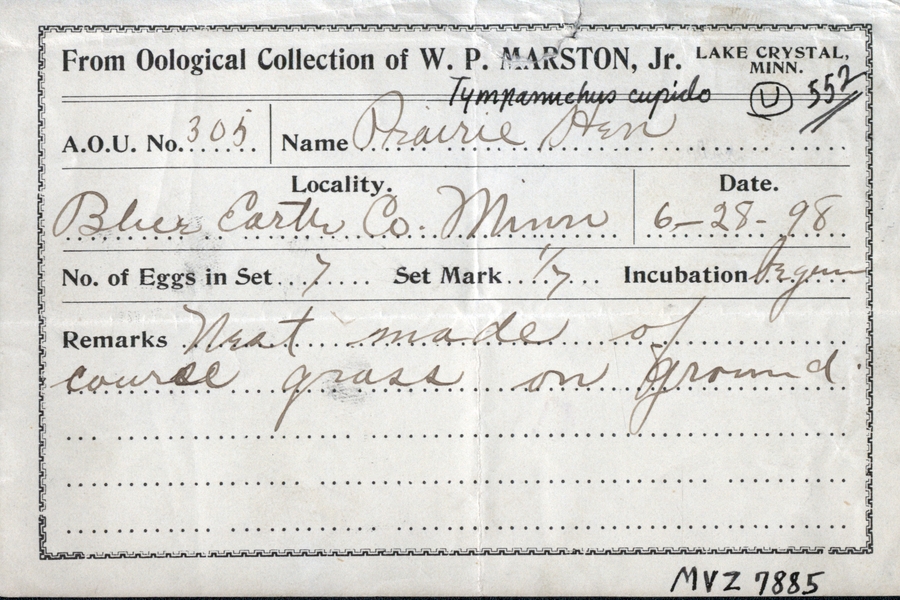 From Oological Collection of W. P. MARSTON, Jr. LAKE CRYSTAL, MINN.
Tympanuchus cupido U 552
A.O.U. No. 305 Name Prairie Hen
Locality. Date.
Blue Earth Co. Minn 6-28-98
No. of Eggs in Set 7 Set Mark 1/7 Incubation Begun
Remarks Nest made of
course grass on ground.
MVZ 7885